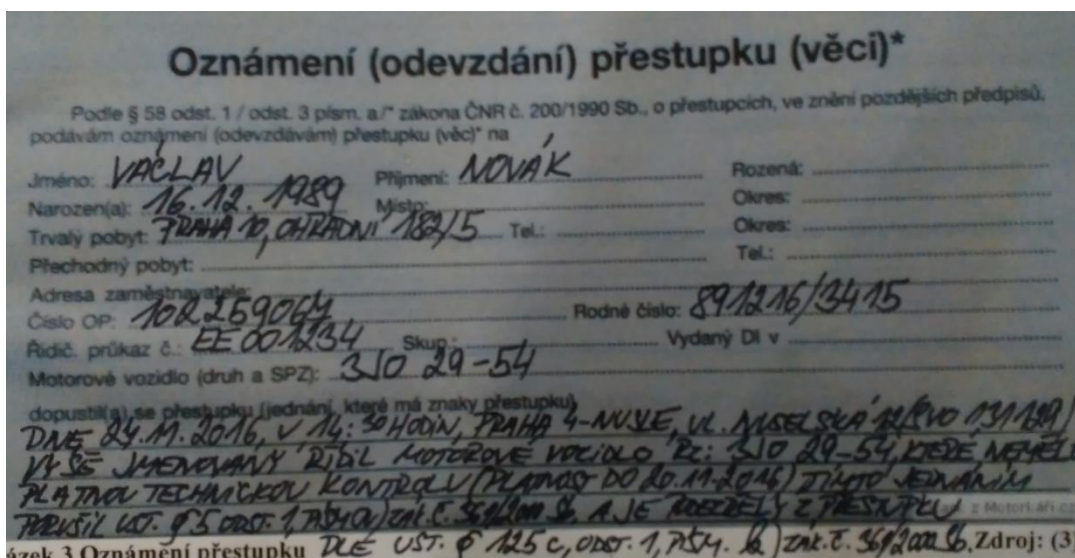 Oznámení (odevzdání) přestupku (věci)*
Podle § 58 odst. 1 / odst. 3 písm. a/* zákona ČNR č. 200/1990 Sb., o přestupcích, ve znění pozdějších předpisů,
podávám oznámení (odevzdávám) přestupku (věc)* na
Jméno: VÁCLAV Příjmení: NOVÁK Rozená:
Narozen(a): 16.12.1989 Místo: Okres:
Trvalý pobyt: PRAHA 10, OHRADNÍ 182/5 Tel.: Okres:
Přechodný pobyt: Tel.:
Adresa zaměstnavatele:
Číslo OP: 102259064 Rodné číslo: 891216/3415
Řidič. průkaz č.: EE 001234 Skup.: Vydaný DI v
Motorové vozidlo (druh a SPZ): 3J0 29-54
dopustil(a) se přestupku (jednání, které má znaky přestupku)
DNE 24.11.2016, V 14:30 HODIN, PRAHA 4-NUSLE, UL. NUSELSKÁ 12/SVO 131129/
VÝŠE JMENOVANÝ ŘÍDIL MOTOROVÉ VOZIDLO RZ: 3J0 29-54, KTERÉ NEMĚLO
PLATNOU TECHNICKOU KONTROLU (PLATNOST DO 20.11.2016) TÍMTO JEDNÁNÍM
PORUŠIL UST. § 5 ODST. 1, PÍSM. ZÁK. Č. 361/2000 Sb. A JE PODEZŘELÝ Z PŘESTUPKU
z Motorkáři.cz
DLE UST. § 125 c, ODST. 1, PÍSM. ZÁK. Č. 361/2000 Sb.
ázek 3 Oznámení přestupku Zdroj: (3